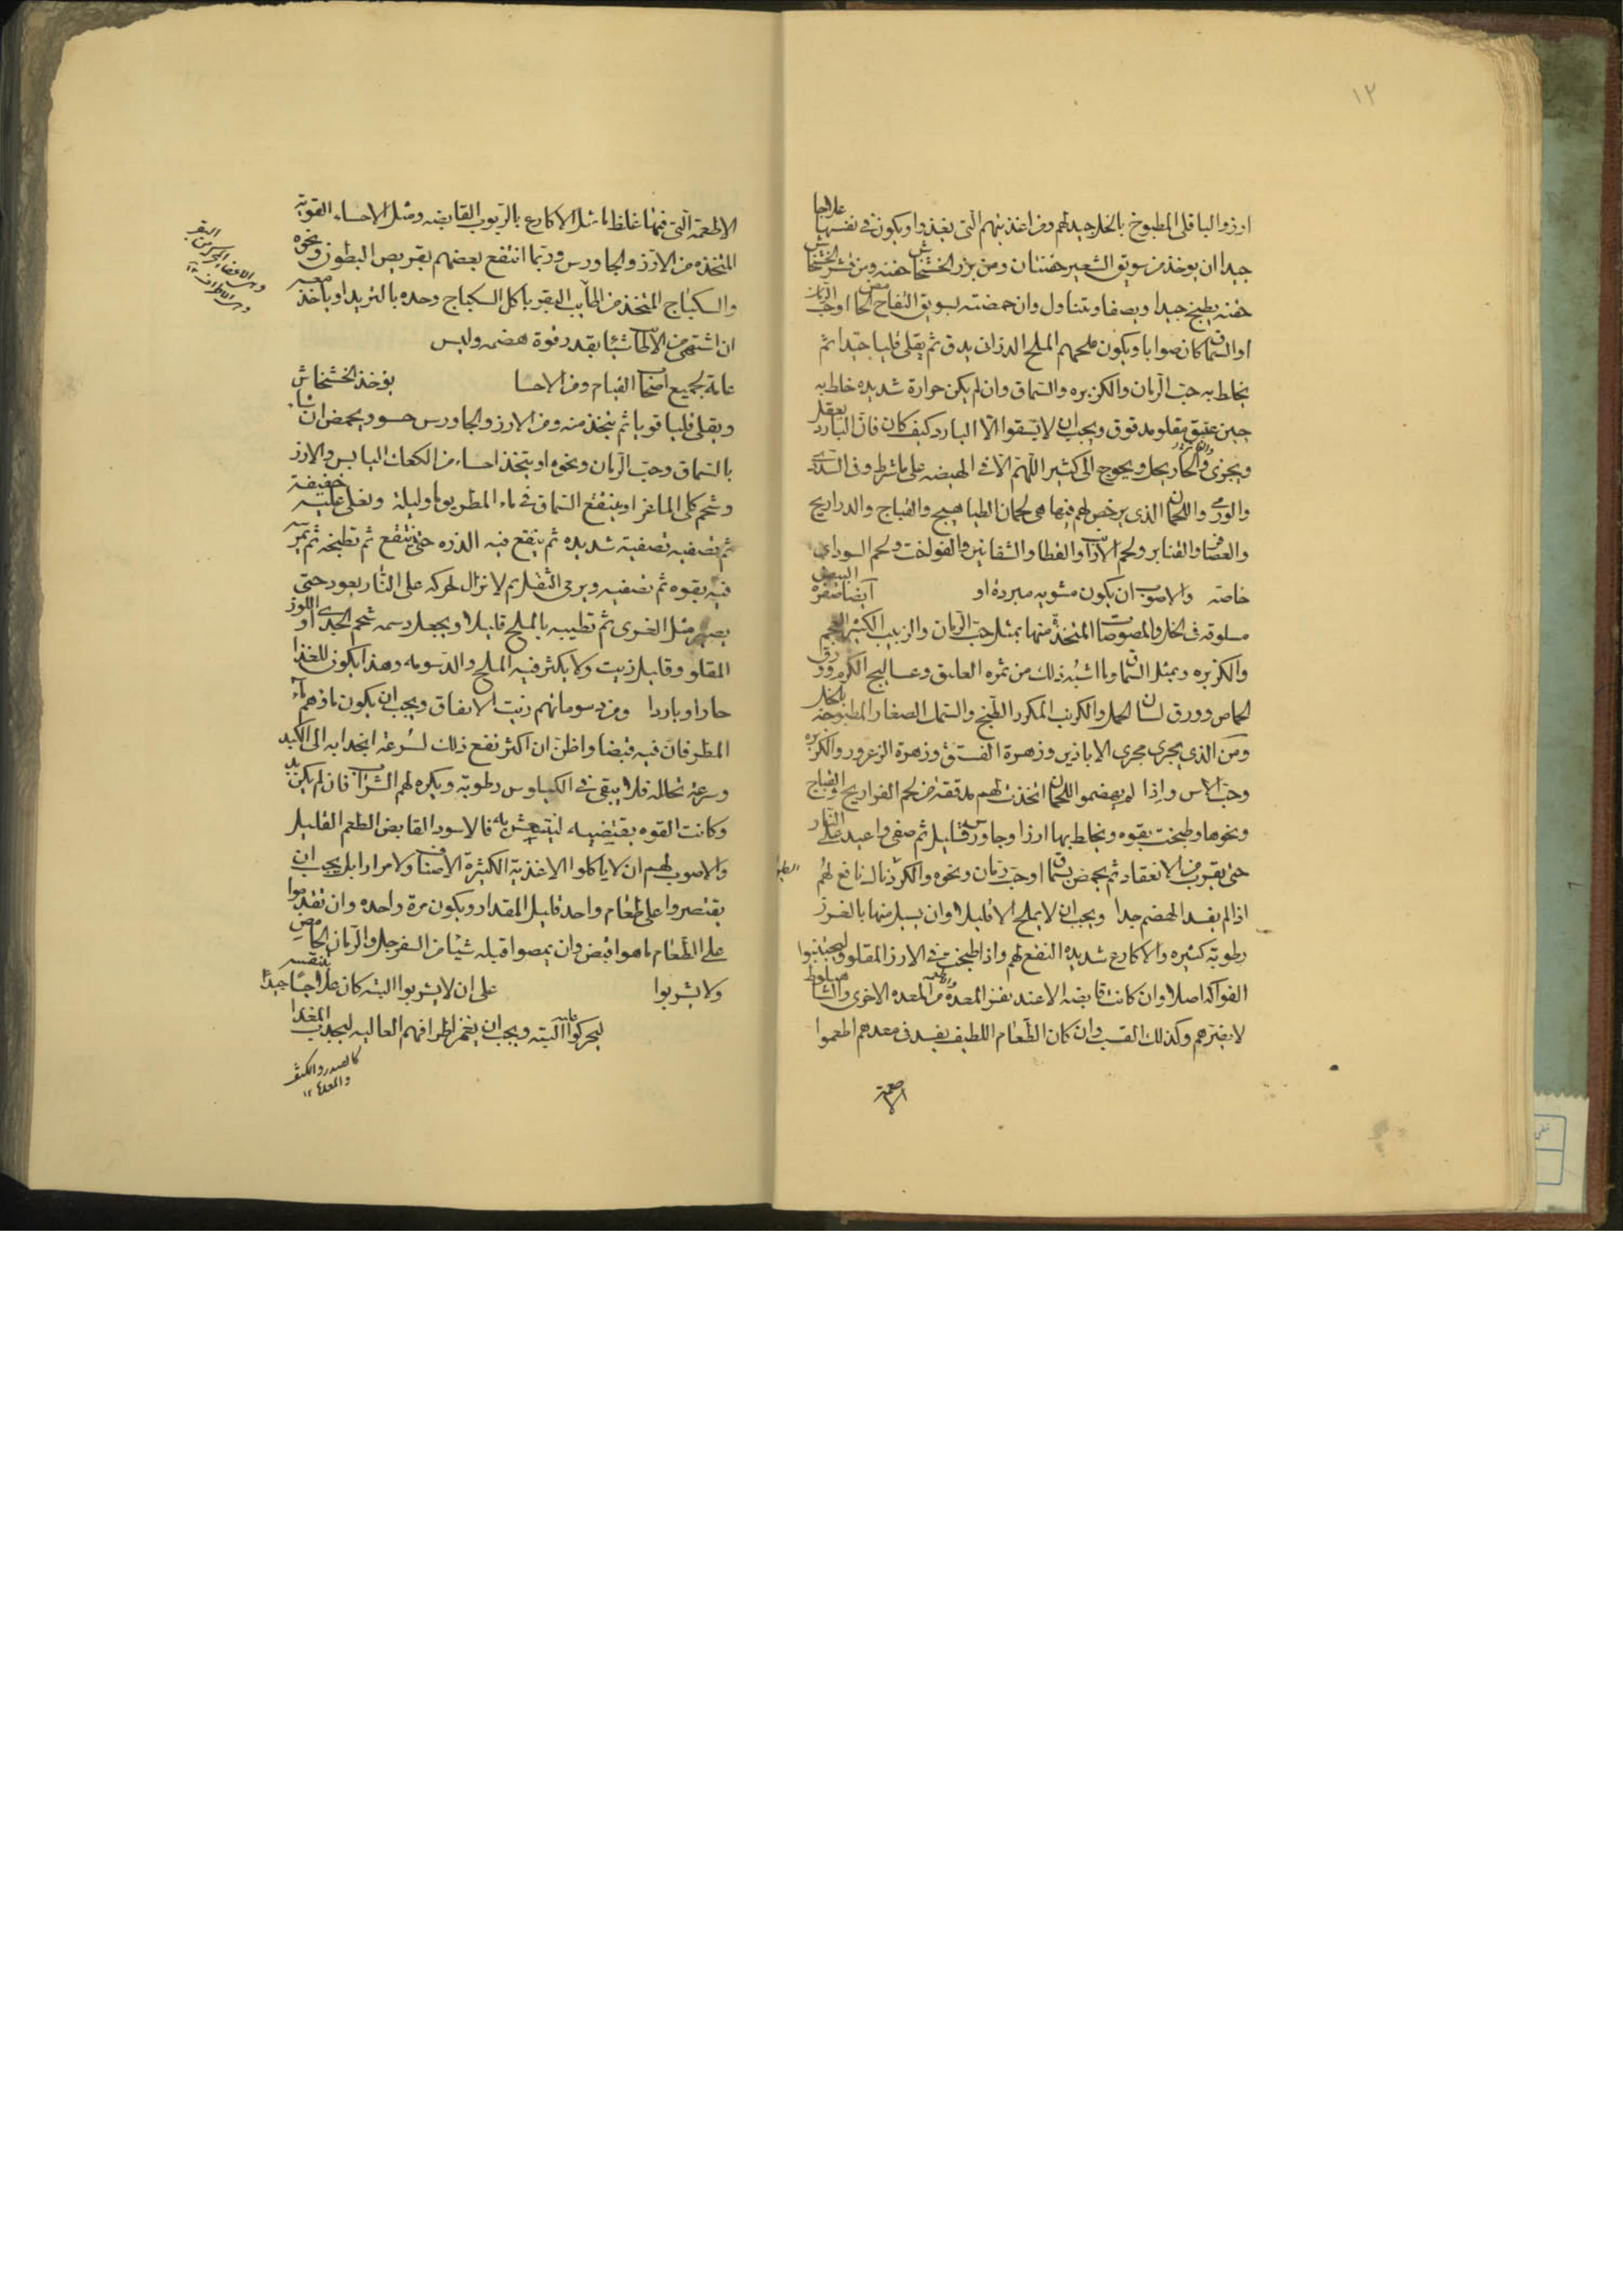 ١٢
ارز والباقلى المطبوخ بالخل جيد لهم ومن اغذيتهم التى تغذوا ويكون فى نفسها علاجا
جيدا ان يوخذ من سويق الشعير حفنتان ومن بزر الخشخاش حفنه ومن قشر الخشخاش
حفنه يطبخ جيدا ويصفا ويتناول وان حمضته بسويق التفاح الحامض او حب الرمان
او السماق كان صوابا ويكون ملحهم الملح الدرانى يدق ثم يقلى قليا جيدا ثم
يخلط به حب الرمان والكزبره والسماق وان لم يكن حرارة شديده خلط به
جبن عتيق مقلو مدقوق ويجب ان لا يسقوا الا البارد كيف كان فان البارد يعقل
ويجزى والحار يحل ويحوج الى كثير اللهم الا فى الهيضه على ما شرط وفى السددى
والورمى واللحمان الذى يرخص لهم فيها هى لحمان الطياهيج والقباج والدراريج
والعصافير والقنابر ولحم الارانب والقطا والشفانين والفواخت ولحم السودانى
خاصة والاصوب ان يكون مشويه مبردة او ايضا صفرة البيض
مسلوقه فى الخل والمصوصات المتخذة منها بمثل حب الرمان والزبيب الكثير العجم
والكزبره وبمثل السماق وما اشبه ذلك من ثمره العليق وعساليج الكرم وورق
الحماض وورق لسان الحمل والكرنب المكرر الطبخ والسمك الصغار المطبوخه بالخل
ومن الذى يجرى مجرى الابازير وزهرة الفستق وزهرة الزعرور والكزبره
وحب الاس واذا لم يهضموا اللحمان اتخذت لهم مدققه من لحم الفراريج والقباج
ونحوها وطبخت بقوه ويخلط بها ارزا وجاورس قليل ثم صفى واعيد على النار
حتى يقرب من الانعقاد ثم يحمض بسماق او حب رمان ونحوه والكردناك نافع لهم
اذا لم يفسد الهضم جدا ويجب ان لا يملح الا قليلا وان يسيل منها بالغرز
رطوبة كثيره والاكارع شديدة النفع لهم واذا طبخت فى الارز المقلو وليجتنبوا
الفواكه اصلا وان كانت قابضه الا عند نفر المعدة من المعده الاخرى والشاهبلوط
لا يضرهم وكذلك القسب وان كان الطعام اللطيف يفسد فى معدهم اطعموا
الاطعمة التى فيها غلظ ما مثل الاكارع بالربوب القابضه ومثل الاحساء القوية
المتخذه من الارز والجاورس وربما انتفع بعضهم بقريص البطون ونحوه
والسكباج المتخذ من اطايب البقر ياكل السكباج وحده بالثريد او ياخذ معه
ان اشتهى من الاطايب شيئا بقدر قوة هضمه وليس
عامة لجميع اصحاب القيام ومن الاحسا يوخذ الخشخاش
ويقلى قليا قويا ثم يتخذ منه ومن الارز والجاورس حسو ويحمض ان شاء
بالسماق وحب الرمان ونحوه او يتخذ احساء من الكعك اليابس والارز
وشحم كلى الماعز او ينقع السماق فى ماء المطر يوما وليلة ويغلى عليه خفيفة
ثم تصفيه تصفية شديده ثم ينقع فيه الذره حتى ينتقع ثم تطبخه ثم تمرسه
فيه بقوه ثم تصفيه ويرمى الثفل ثم لا تزال تحركه على النار بعود حتى
يصير مثل الغرى ثم تطيبه بالملح قليلا ويجعل دسمه شحم الجدى او اللوز
المقلو وقليل زيت ولا يكثر فيه الملح والدسومه وهذا يكون للغذا
حارا وباردا ومن دسوماتهم زيت الانفاق ويجب ان يكون ماؤهم ماء
المطر فان فيه قبضا واظن ان اكثر نفع ذلك لسرعة انجذابه الى الكبد
وسرعة تحلله فلا يبقى فى الكيلوس رطوبة ويكره لهم الشراب فان لم يكن بد
وكانت القوه يقتضيه لينتعش به فالاسود القابض الطعم القليل
والاصوب لهم ان لا ياكلوا الاغذية الكثيرة الاصناف ولا مرارا بل يجب ان
يقتصروا على طعام واحد قليل المقدار ويكون مرة واحده وان تقدموا
على الطعام ما هو اقبض وان يمصوا قبله شيئا من السفرجل والرمان الحامض
ولا يشربوا على ان لا يشربوا البته كان علاجا جيدا بنفسه
ليحركوا البته ويجب ان يغمز اطرافهم العاليه ليجذب الغذا
كالصدر والكتف
والمعدة ١٢